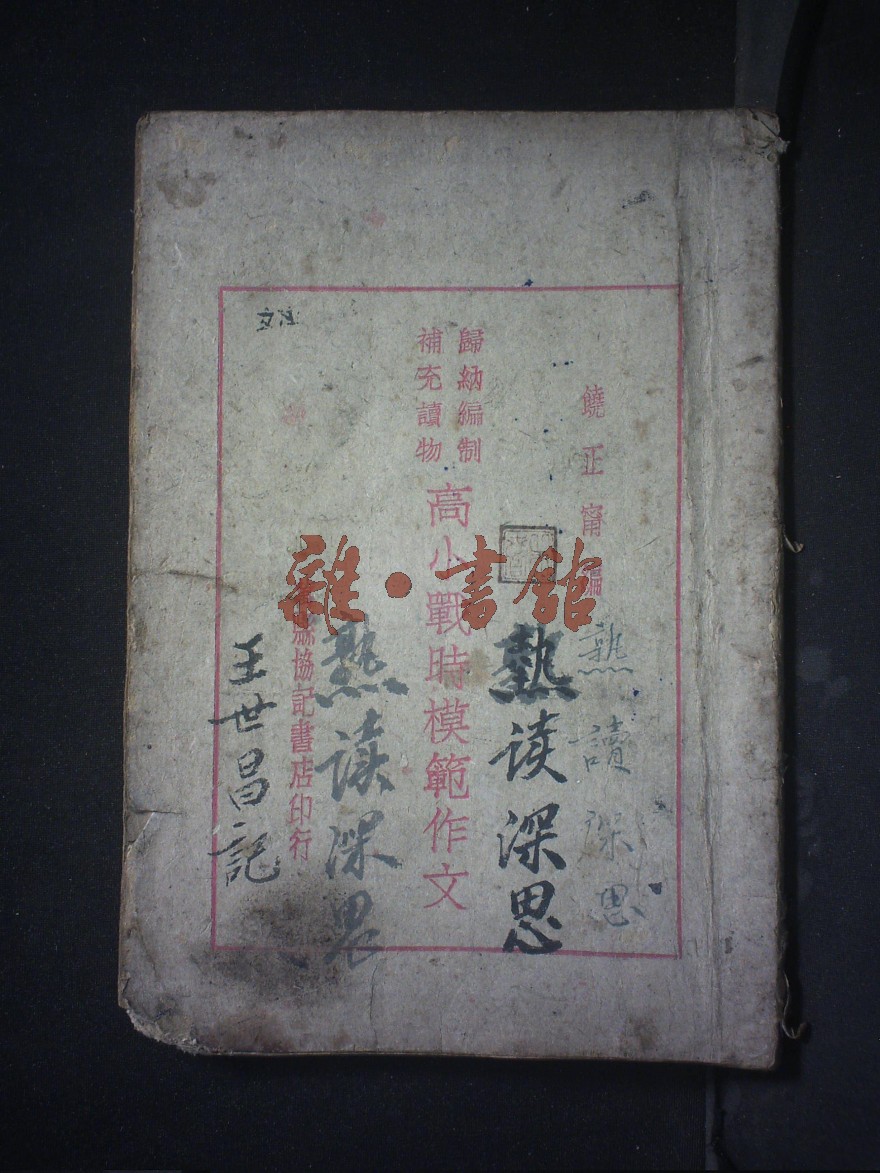 饒正甯編
歸納編制
補充讀物
高小戰時模範作文
縣協記書店印行
熟讀深思
熟读深思
熟读深思
王世昌記
雜·書館